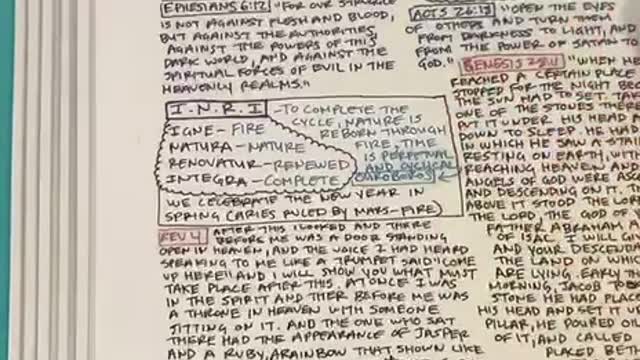 EPHESIANS 6:12 "FOR OUR STRUGGLE
IS NOT AGAINST FLESH AND BLOOD,
BUT AGAINST THE AUTHORITIES,
AGAINST THE POWERS OF THIS
DARK WORLD, AND AGAINST THE
SPIRITUAL FORCES OF EVIL IN THE
HEAVENLY REALMS."
I.N.R.I - TO COMPLETE THE
CYCLE, NATURE IS
IGNE - FIRE REBORN THROUGH
NATURA - NATURE FIRE, TIME
RENOVATUR - RENEWED IS PERPETUAL
AND CYCLICAL
INTEGRA - COMPLETE OAROBOROS
WE CELEBRATE THE NEW YEAR IN
SPRING (ARIES RULED BY MARS-FIRE)
REV 4 AFTER THIS I LOOKED AND THERE
BEFORE ME WAS A DOOR STANDING
OPEN IN HEAVEN, AND THE VOICE I HAD HEARD
SPEAKING TO ME LIKE A TRUMPET SAID "COME
UP HERE" AND I WILL SHOW YOU WHAT MUST
TAKE PLACE AFTER THIS. AT ONCE I WAS
IN THE SPIRIT AND THER BEFORE ME WAS
A THRONE IN HEAVEN WITH SOMEONE
SITTING ON IT. AND THE ONE WHO SAT
THERE HAD THE APPEARANCE OF JASPER
AND A RUBY, A RAINBOW THAT SHOWN LIKE
ACTS 26:18 "OPEN THE EYES
OF OTHERS AND TURN THEM
FROM DARKNESS TO LIGHT, AND
FROM THE POWER OF SATAN TO
GOD."
GENESIS "WHEN HE
REACHED A CERTAIN PLACE
STOPPED FOR THE NIGHT BEC
THE SUN HAD TO SET. TAK
ONE OF THE STONES THERE
PUT IT UNDER HIS HEAD A
DOWN TO SLEEP. HE HAD
IN WHICH HE SAW A STAIR
RESTING ON EARTH, WITH
REACHING HEAVEN AND
ANGELS OF GOD WERE ASC
AND DESCENDING ON IT. T
ABOVE IT STOOD THE LORD
THE LORD, THE GOD OF
FATHER ABRAHAM A
OF ISAC. I WILL GIV
AND YOUR DESCEND
THE LAND ON WHICH
ARE LYING. EARLY TH
MORNING, JACOB TO
STONE HE HAD PLAC
HIS HEAD AND SET IT U
PILLAR, HE POURED OIL
OF IT, AND CALLED
PLACED BETH